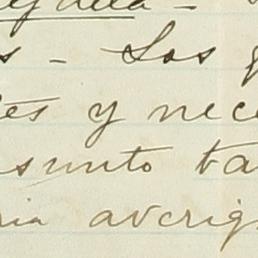 s - Los
es y nece
sunto ta
ria averig